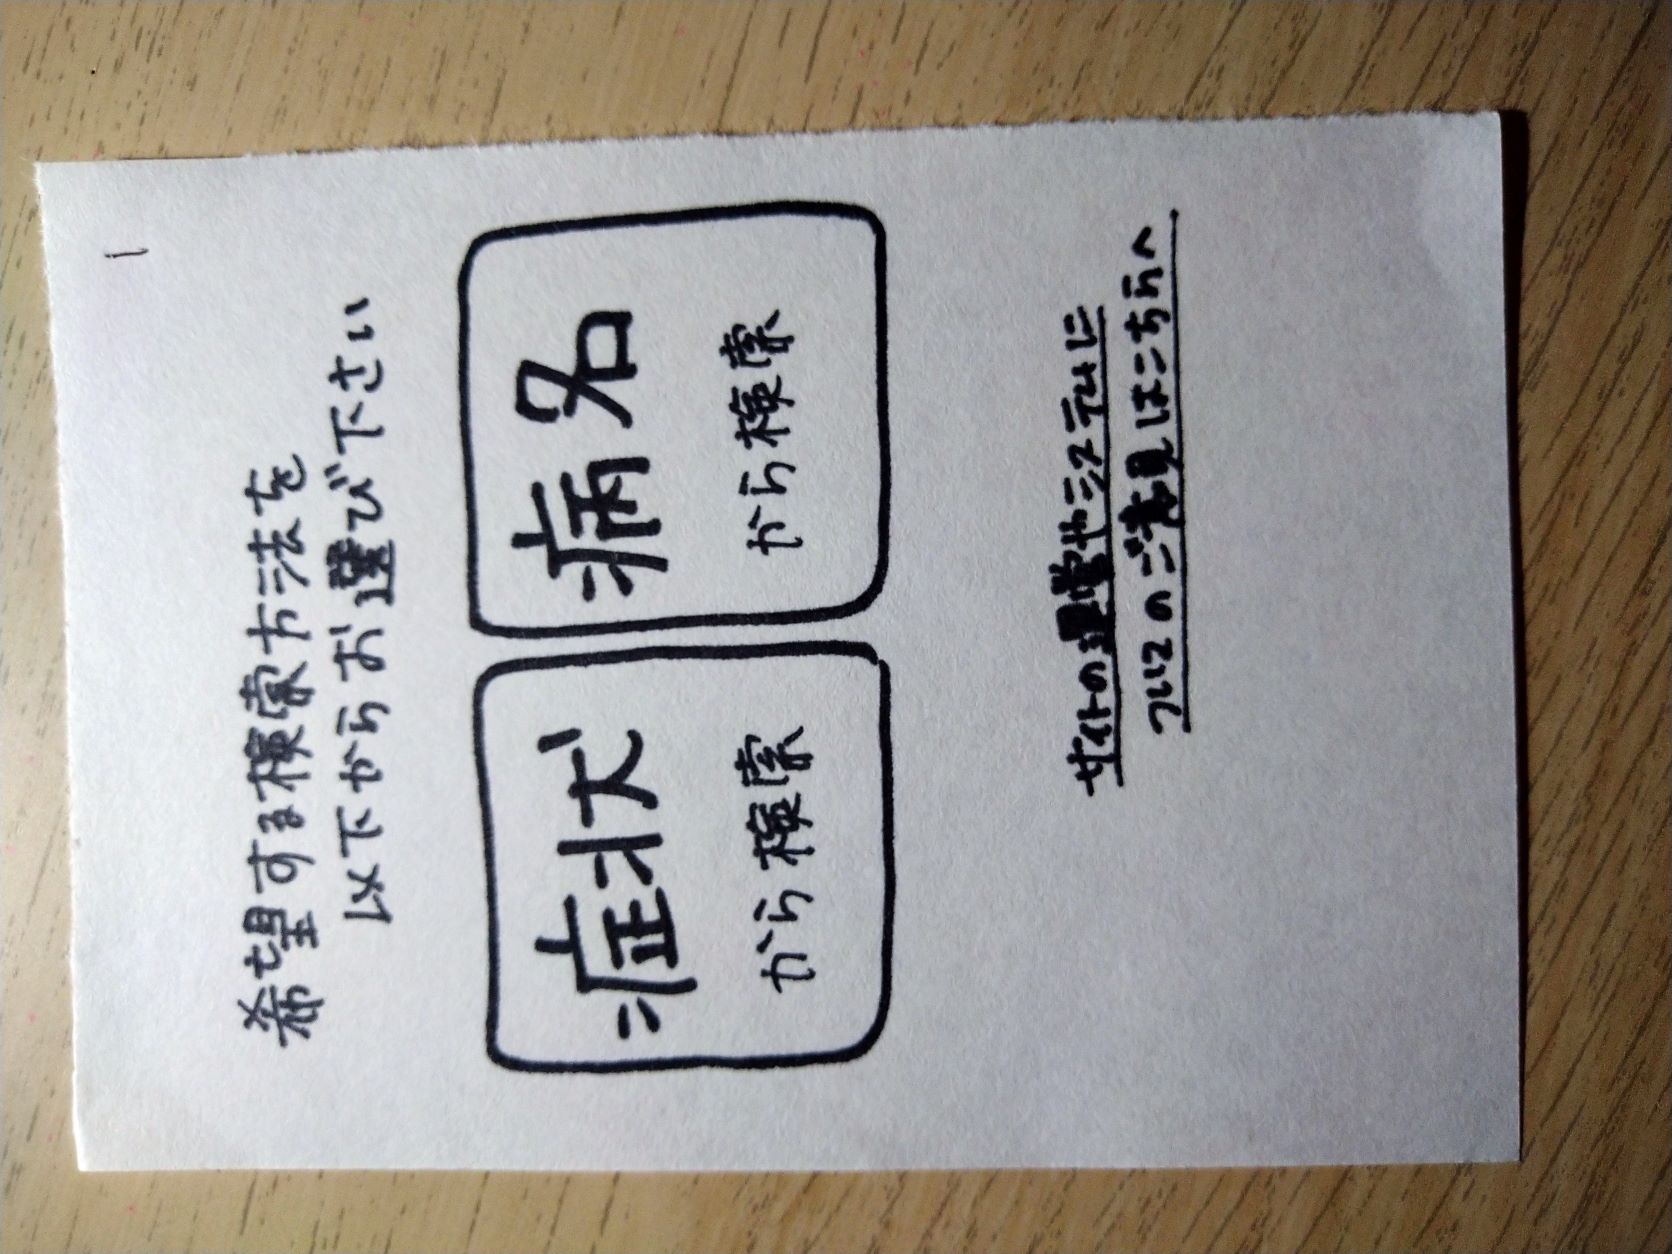 1
希望する検索方法を
以下からお選び下さい
症状
から検索
病名
から検索
サイトの運営やシステムに
ついてのご意見はこちらへ